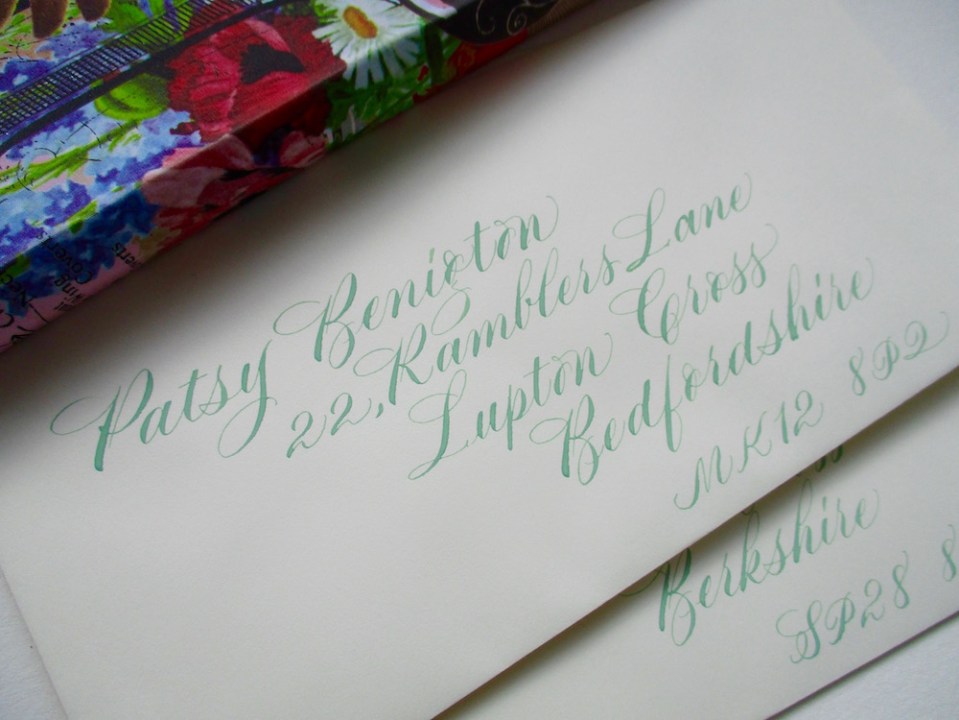 Patsy Benigton
22, Ramblers Lane
Lupton Cross
Bedfordshire
MK12 8P2
Berkshire
SP28 8